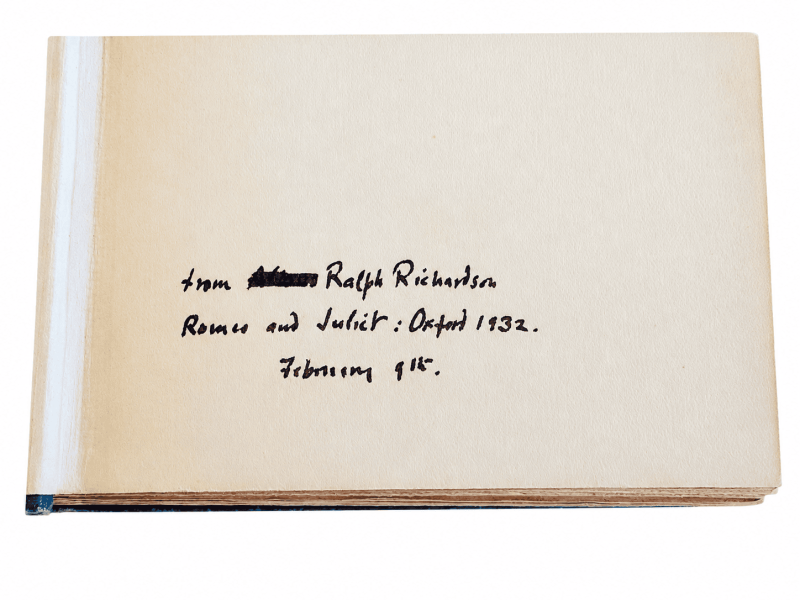 from Ralph Richardson
Romeo and Juliet : Oxford 1932.
February 9th.